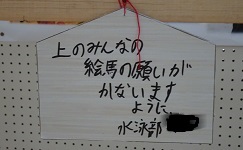 上のみんなの
絵馬の願いが
かないます
ように
水泳部